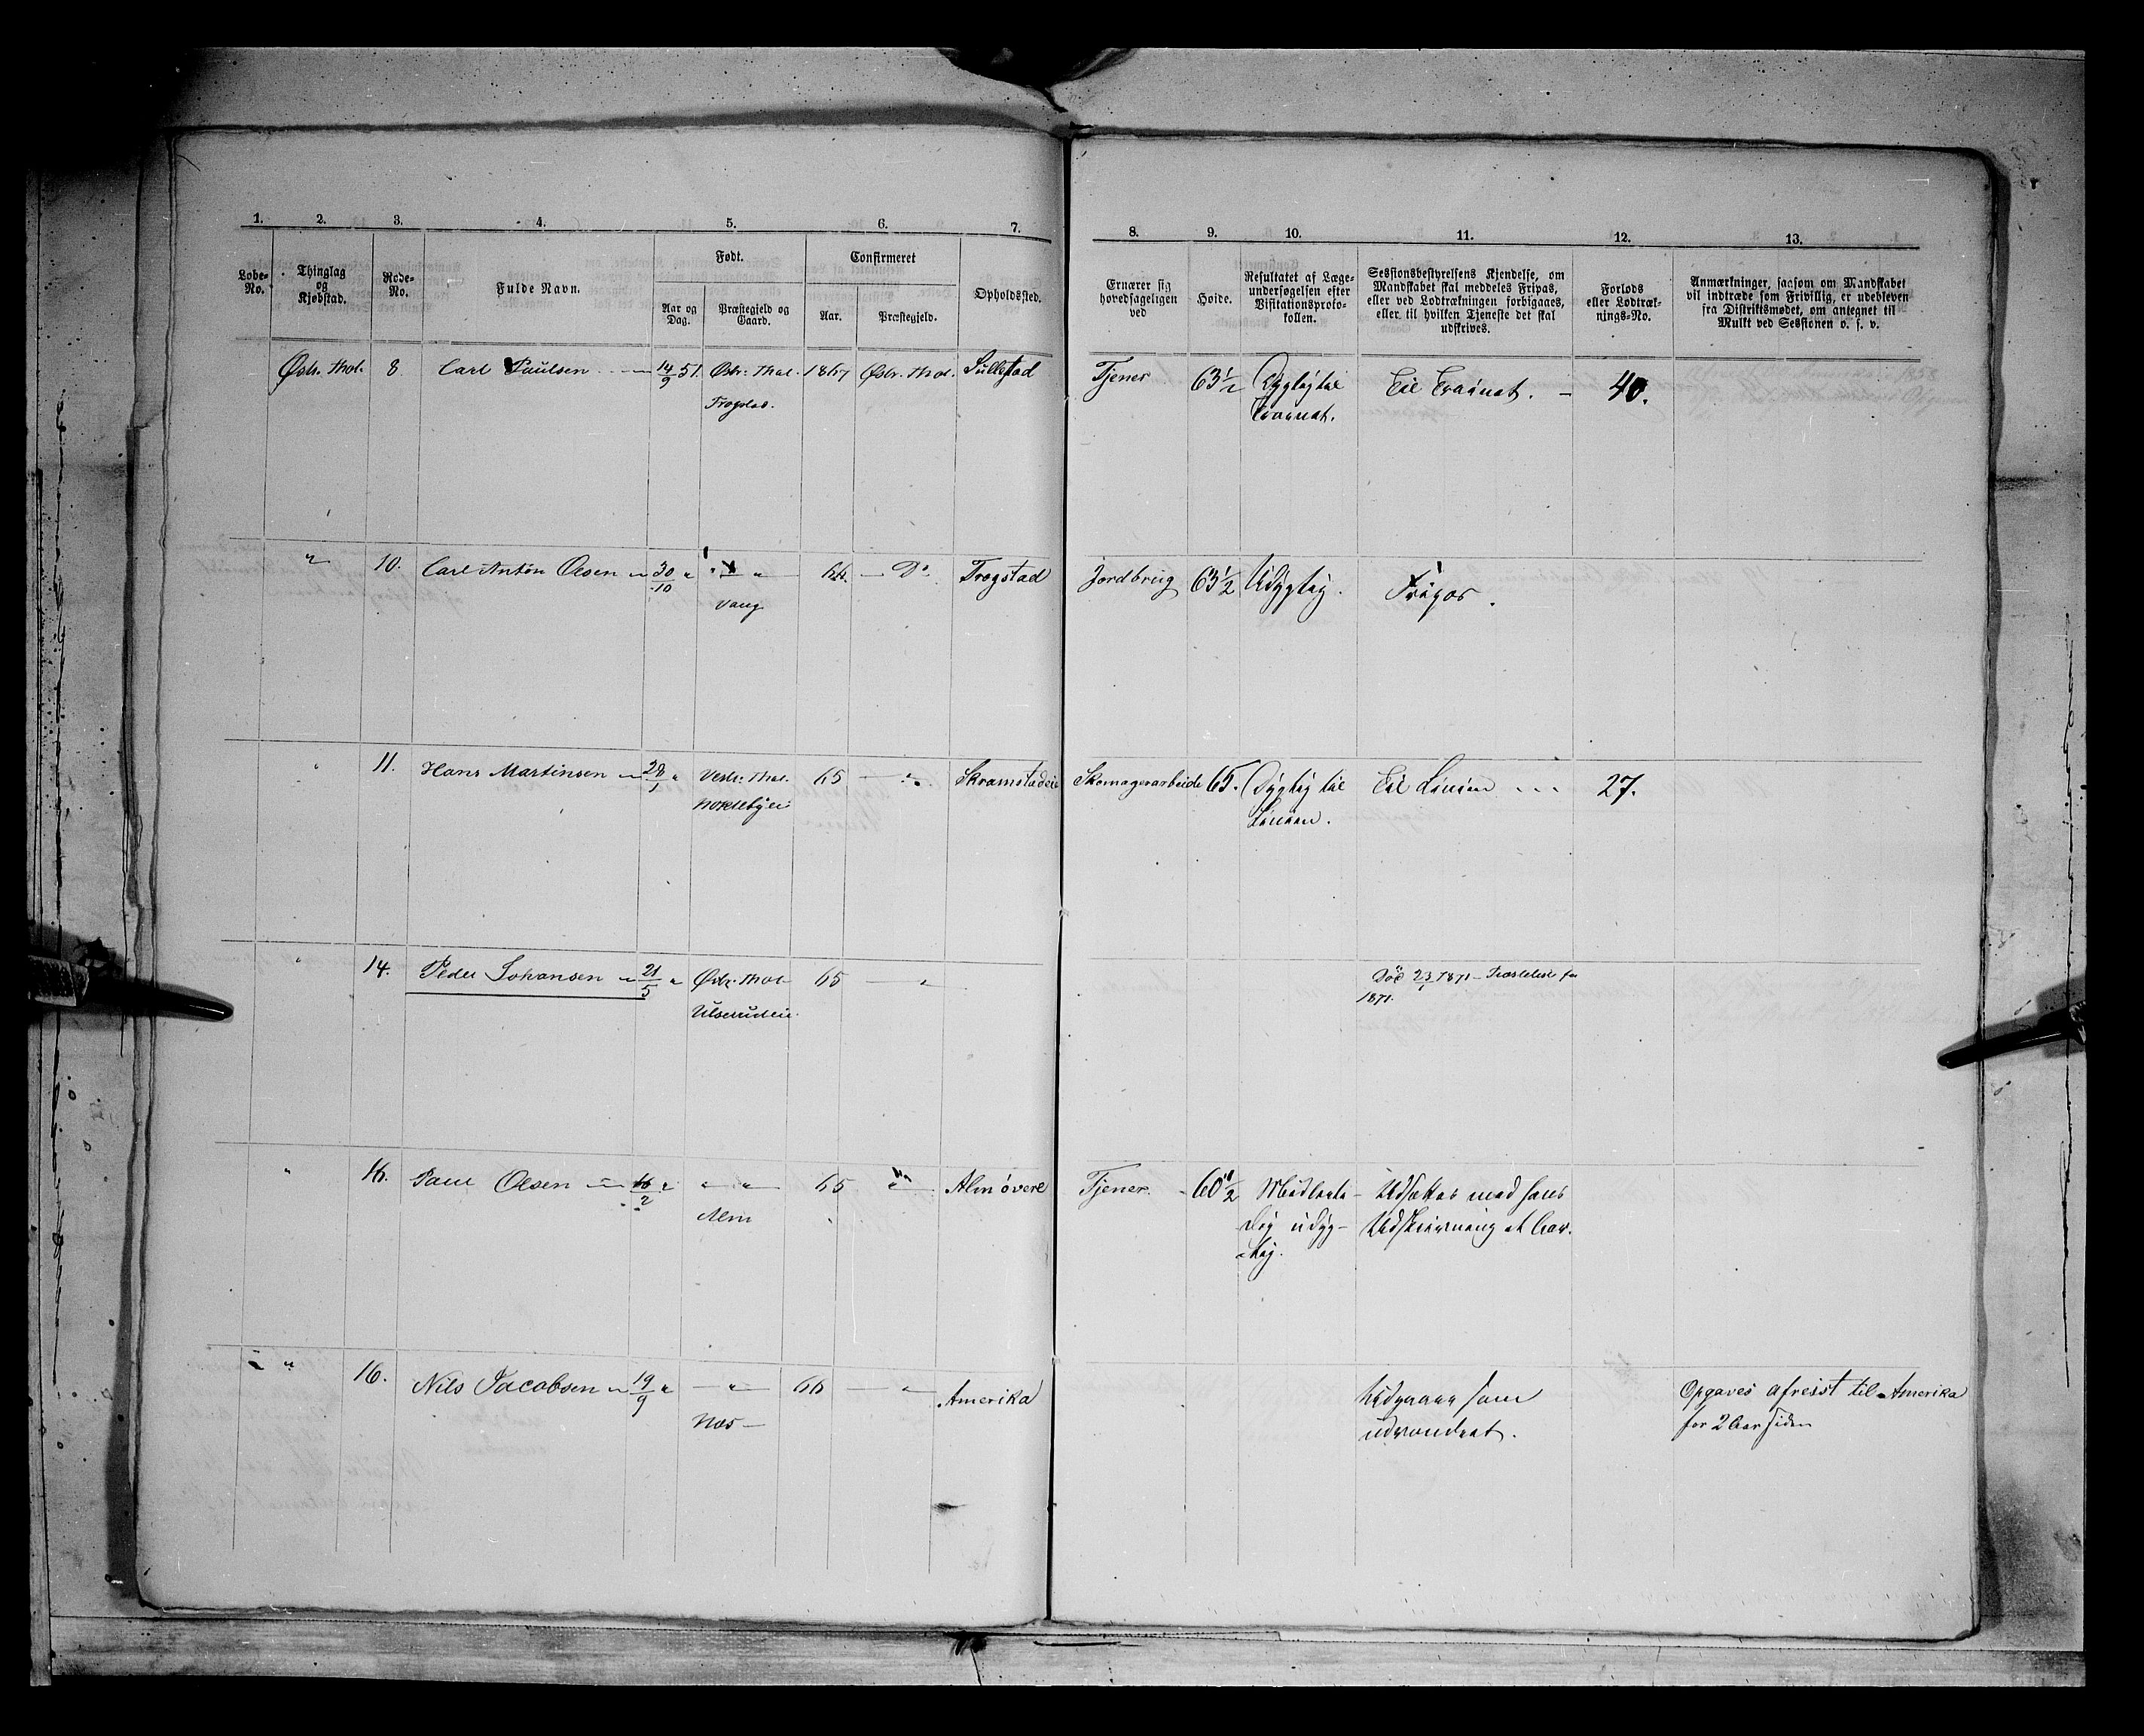 1. 2. 3. 4. 5. 6. 7.
8. 9. 10. 11. 12. 13.
Løbe-No. Thinglag og Kjøbstad. Rode-No. Fulde Navn. Født. Aar og Dag. Præstegjeld og Gaard. Confirmeret Aar. Præstegjeld. Opholdssted.
Ernærer sig hovedsageligen ved Høide. Resultatet af Læge-undersøgelsen efter Visitationsproto-kollen. Sessionsbestyrelsens Kjendelse, om Mandskabet skal meddeles Fripas, eller ved Lodtrækningen forbigaaes, eller til hvilken Tjeneste det skal udskrives. Forlods eller Lodtræk-nings-No. Anmærkninger, saasom om Mandskabet vil indtræde som Frivillig, er udebleven fra Distriktsmødet, om antegnet til Mulkt ved Sessionen o. s. v.
Østr. Thot. 8 Carl Paulsen 14/9 51. Østr. Thot. 1867 Østr. Thot. Sullestad Tjener 63½ Dygtig til Til Trainet. – 40.
Trogstad. Trainet.
" 10. Carl Anton Olsen " 30/10 " " " 66. – Do Trogstad Jordbrug 63½ Udygtig. Fripas.
Vang
" 11. Hans Martinsen " 28/1 " Vestr. Thot. 65 – " Skramstadeie Skomagerarbeide 65. Dygtig til Til Linien 27.
Linien.
" 14. Peder Johansen " 21/5 " Østr. Thot 65 – " Død 23/1 1871 – for
1871.
" 16. Paul Olsen " 16/2 " " " 65 " Alm øvere Tjener. 60½ Midlerti- Udsættes med hans
Alm dig udyg- Udskrivning et Aar.
tig.
" 16. Nils Jacobsen " 19/9 " – " – 66 – " Amerika Udgaaer som Opgaves afreist til Amerika
Næs – udvandret. for 2 Aar siden